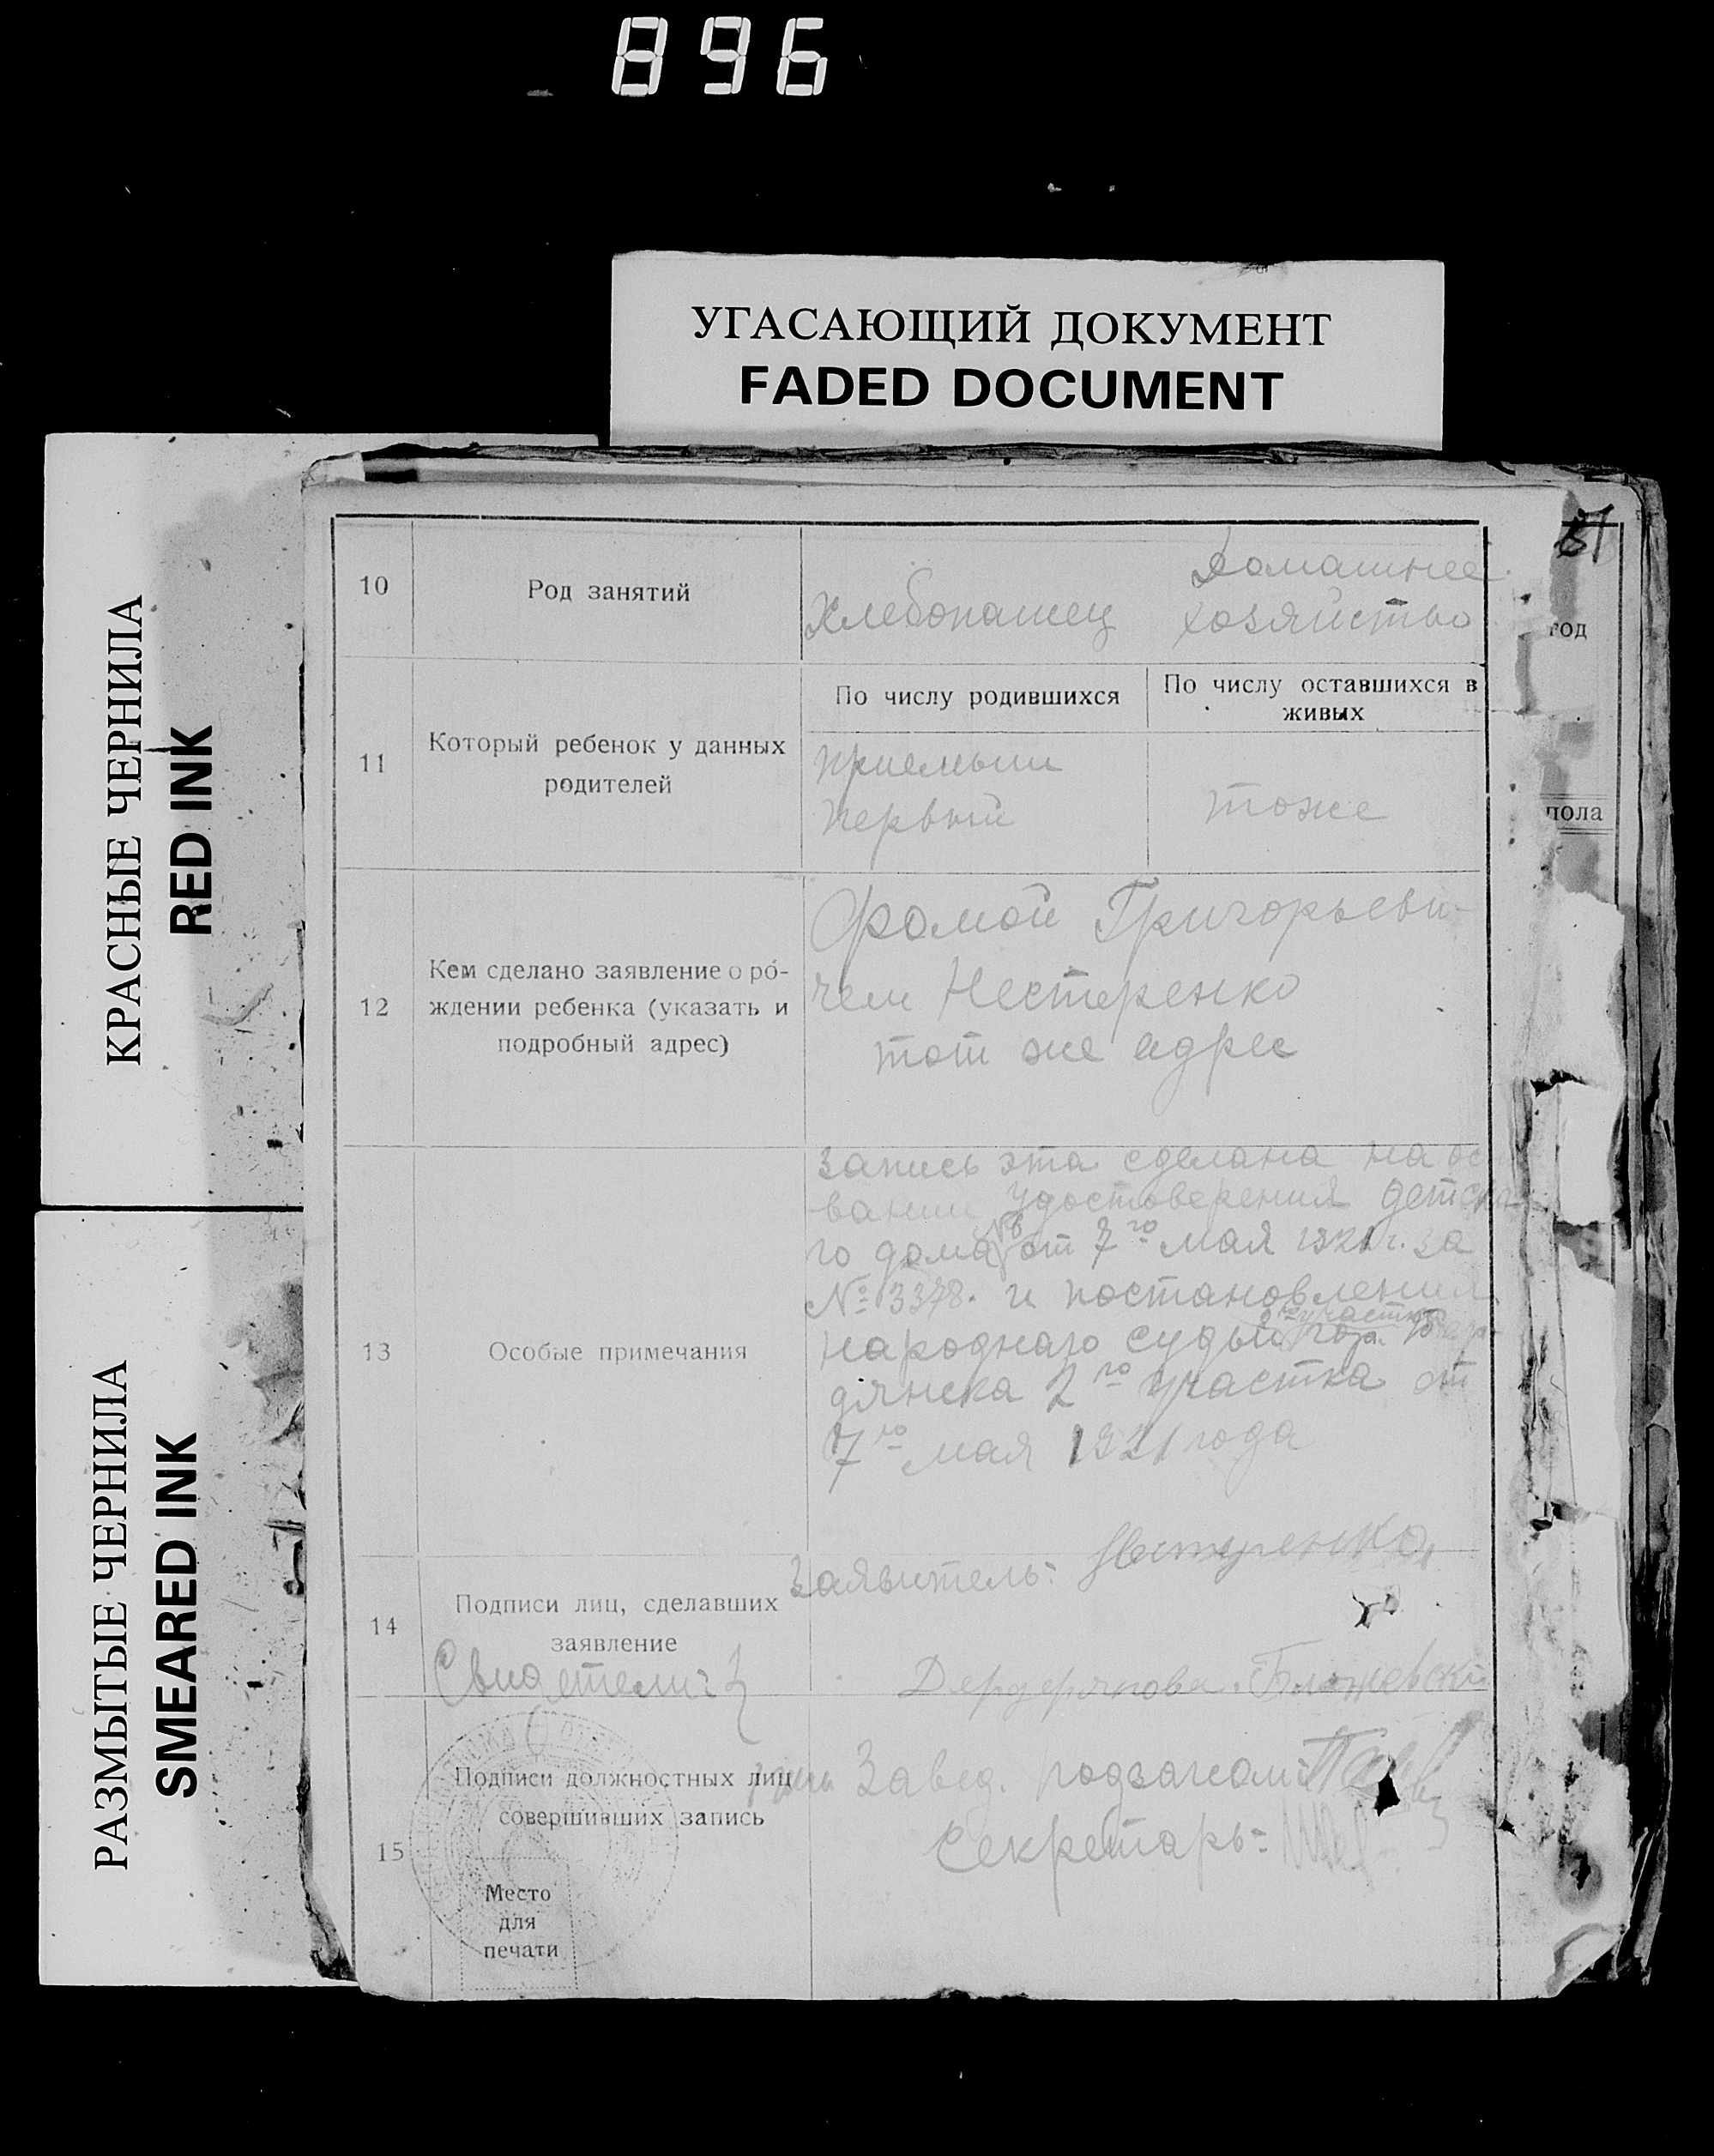 896
УГАСАЮЩИЙ ДОКУМЕНТ
FADED DOCUMENT
КРАСНЫЕ ЧЕРНИЛА
RED INK
РАЗМЫТЫЕ ЧЕРНИЛА
SMEARED INK
10
Род занятий
Хлебопашец
Домашнее
хозяйство
11
Который ребенок у данных
родителей
По числу родившихся
По числу оставшихся в
живых
приемыш
первый
тоже
12
Кем сделано заявление о ро-
ждении ребенка (указать и
подробный адрес)
Фомой Григорьеви-
чем Нестеренко
тот же адрес
13
Особые примечания
Запись эта сделана на ос
вании удостоверения детска-
го дома от 7го мая 1921 г. за
№ 3378. и постановления
участка
народнаго судьи гор.
дянска 2го участка от
7го мая 1921 года
14
Подписи лиц, сделавших
заявление
Заявитель: Нестеренко
Свидетели:
15
Подписи должностных лиц
совершивших запись
Завед. подзагсом:
Секретарь:
Место
для
печати
год
пола